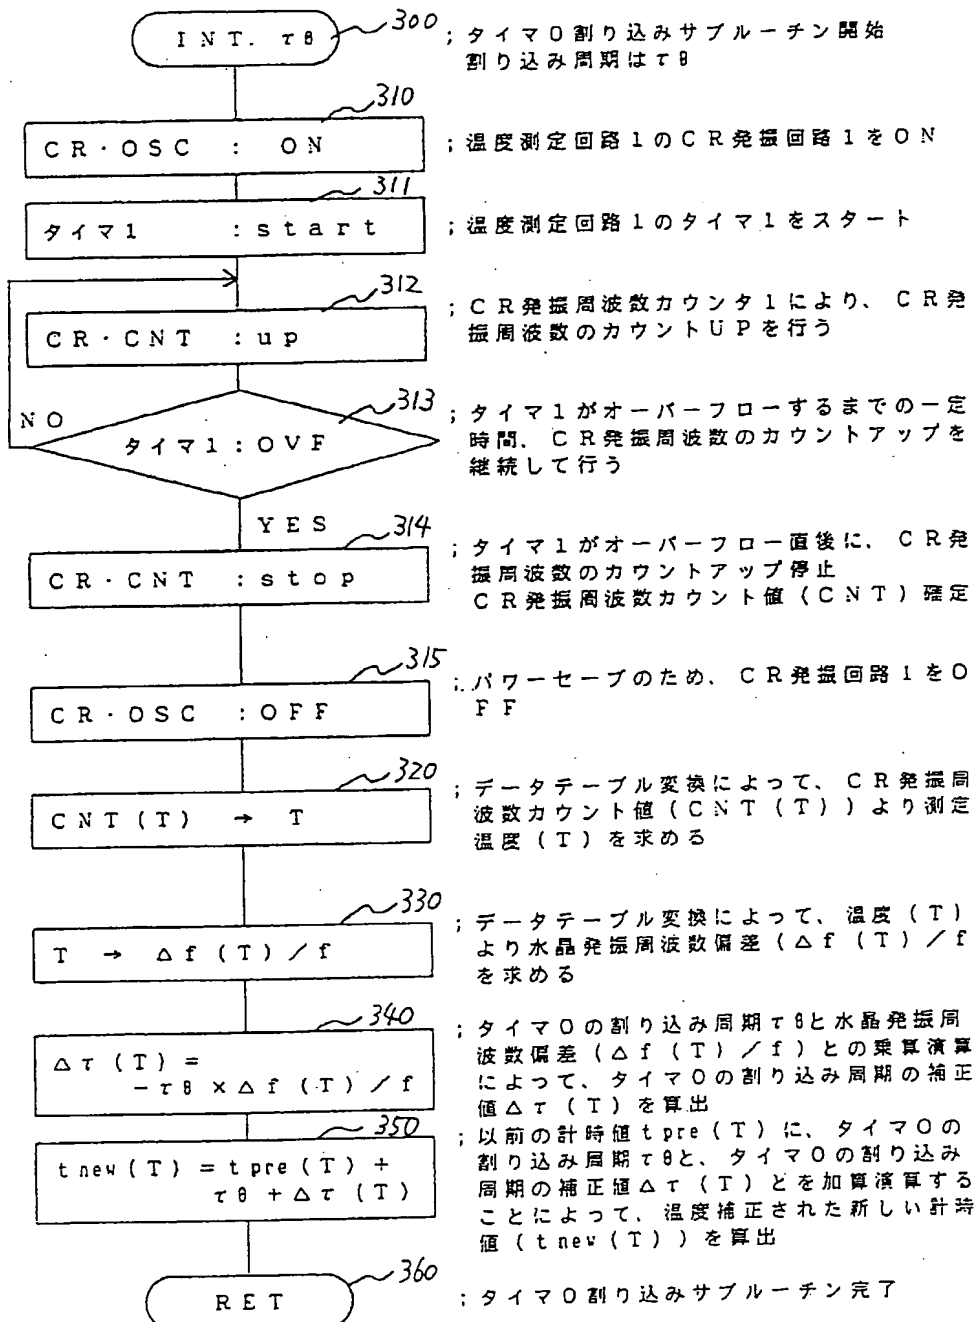 INT. τθ
300
;タイマ0割り込みサブルーチン開始
割り込み周期はτθ
310
CR・OSC : ON
;温度測定回路1のCR発振回路1をON
311
タイマ1 :start
;温度測定回路1のタイマ1をスタート
312
CR・CNT :up
;CR発振周波数カウンタ1により、CR発
振周波数のカウントUPを行う
NO
313
タイマ1:OVF
;タイマ1がオーバーフローするまでの一定
時間、CR発振周波数のカウントアップを
継続して行う
YES
314
CR・CNT :stop
;タイマ1がオーバーフロー直後に、CR発
振周波数のカウントアップ停止
CR発振周波数カウント値(CNT)確定
315
CR・OSC :OFF
;パワーセーブのため、CR発振回路1をO
FF
320
CNT(T) → T
;データテーブル変換によって、CR発振周
波数カウント値(CNT(T))より測定
温度(T)を求める
330
T → Δf(T)/f
;データテーブル変換によって、温度(T)
より水晶発振周波数偏差(Δf(T)/f
を求める
340
Δτ(T)=
-τθ×Δf(T)/f
;タイマ0の割り込み周期τθと水晶発振周
波数偏差(Δf(T)/f)との乗算演算
によって、タイマ0の割り込み周期の補正
値Δτ(T)を算出
350
tnew(T)=tpre(T)+
τθ+Δτ(T)
;以前の計時値tpre(T)に、タイマ0の
割り込み周期τθと、タイマ0の割り込み
周期の補正値Δτ(T)とを加算演算する
ことによって、温度補正された新しい計時
値(tnew(T))を算出
360
RET
;タイマ0割り込みサブルーチン完了